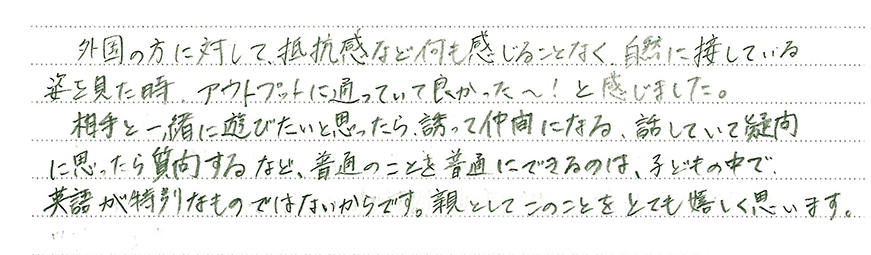 外国の方に対して、抵抗感など何も感じることなく、自然に接している
姿を見た時、アウトプットに通っていて良かった〜！と感じました。
相手と一緒に遊びたいと思ったら、誘って仲間になる、話していて疑問
に思ったら質問するなど、普通のことを普通にできるのは、子どもの中で、
英語が特別なものではないからです。親としてこのことをとても嬉しく思います。